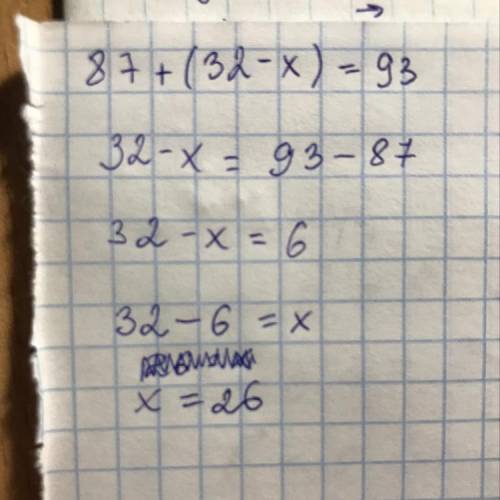 87+(32-x)=93
32-x=93-87
32-x=6
32-6=x
x=26